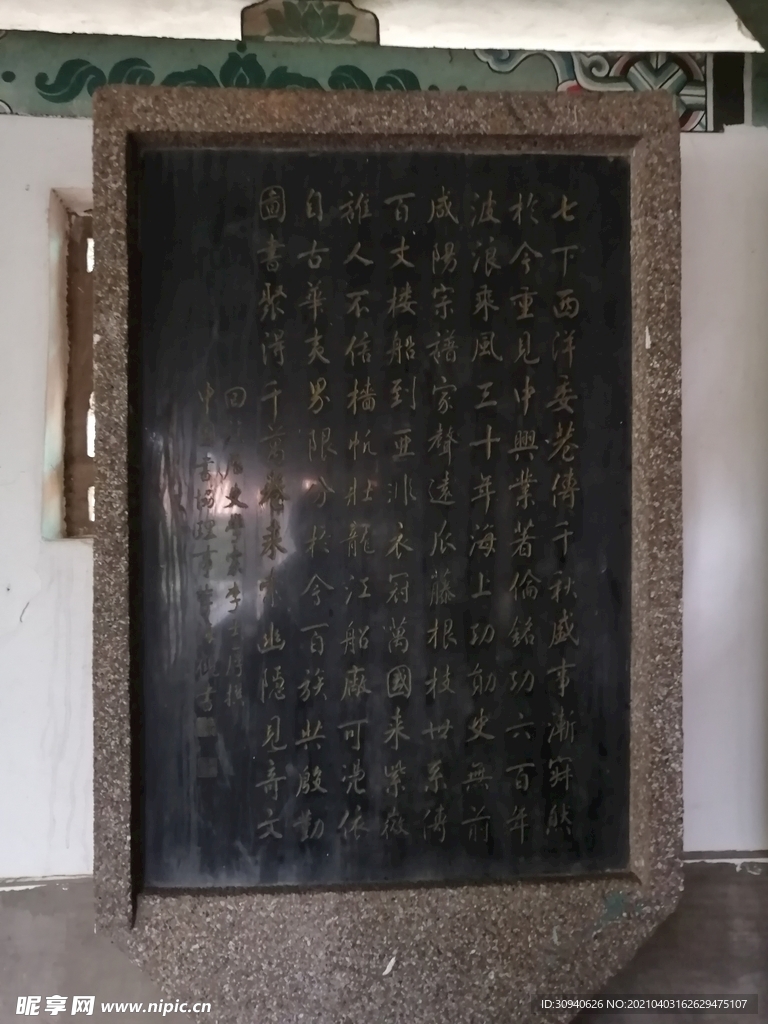 七下西洋委巷傳千秋盛事漸寂然
於今重見中興業著倫銘功六百年
波浪乘風三十年海上功勛史無前
咸陽宗譜家聲遠瓜藤根枝世系傳
百丈樓船到亞非衣冠萬國來紫薇
誰人不信檣帆壯龍江船廠可憑依
自古華夷界限分於今百族共殷勤
圖書聚得千萬卷來求幽隱見奇文
回 歷史學家李士厚撰
中 書協理事 書
昵享网 www.nipic.cn
ID:30940626 NO:20210403162629475107